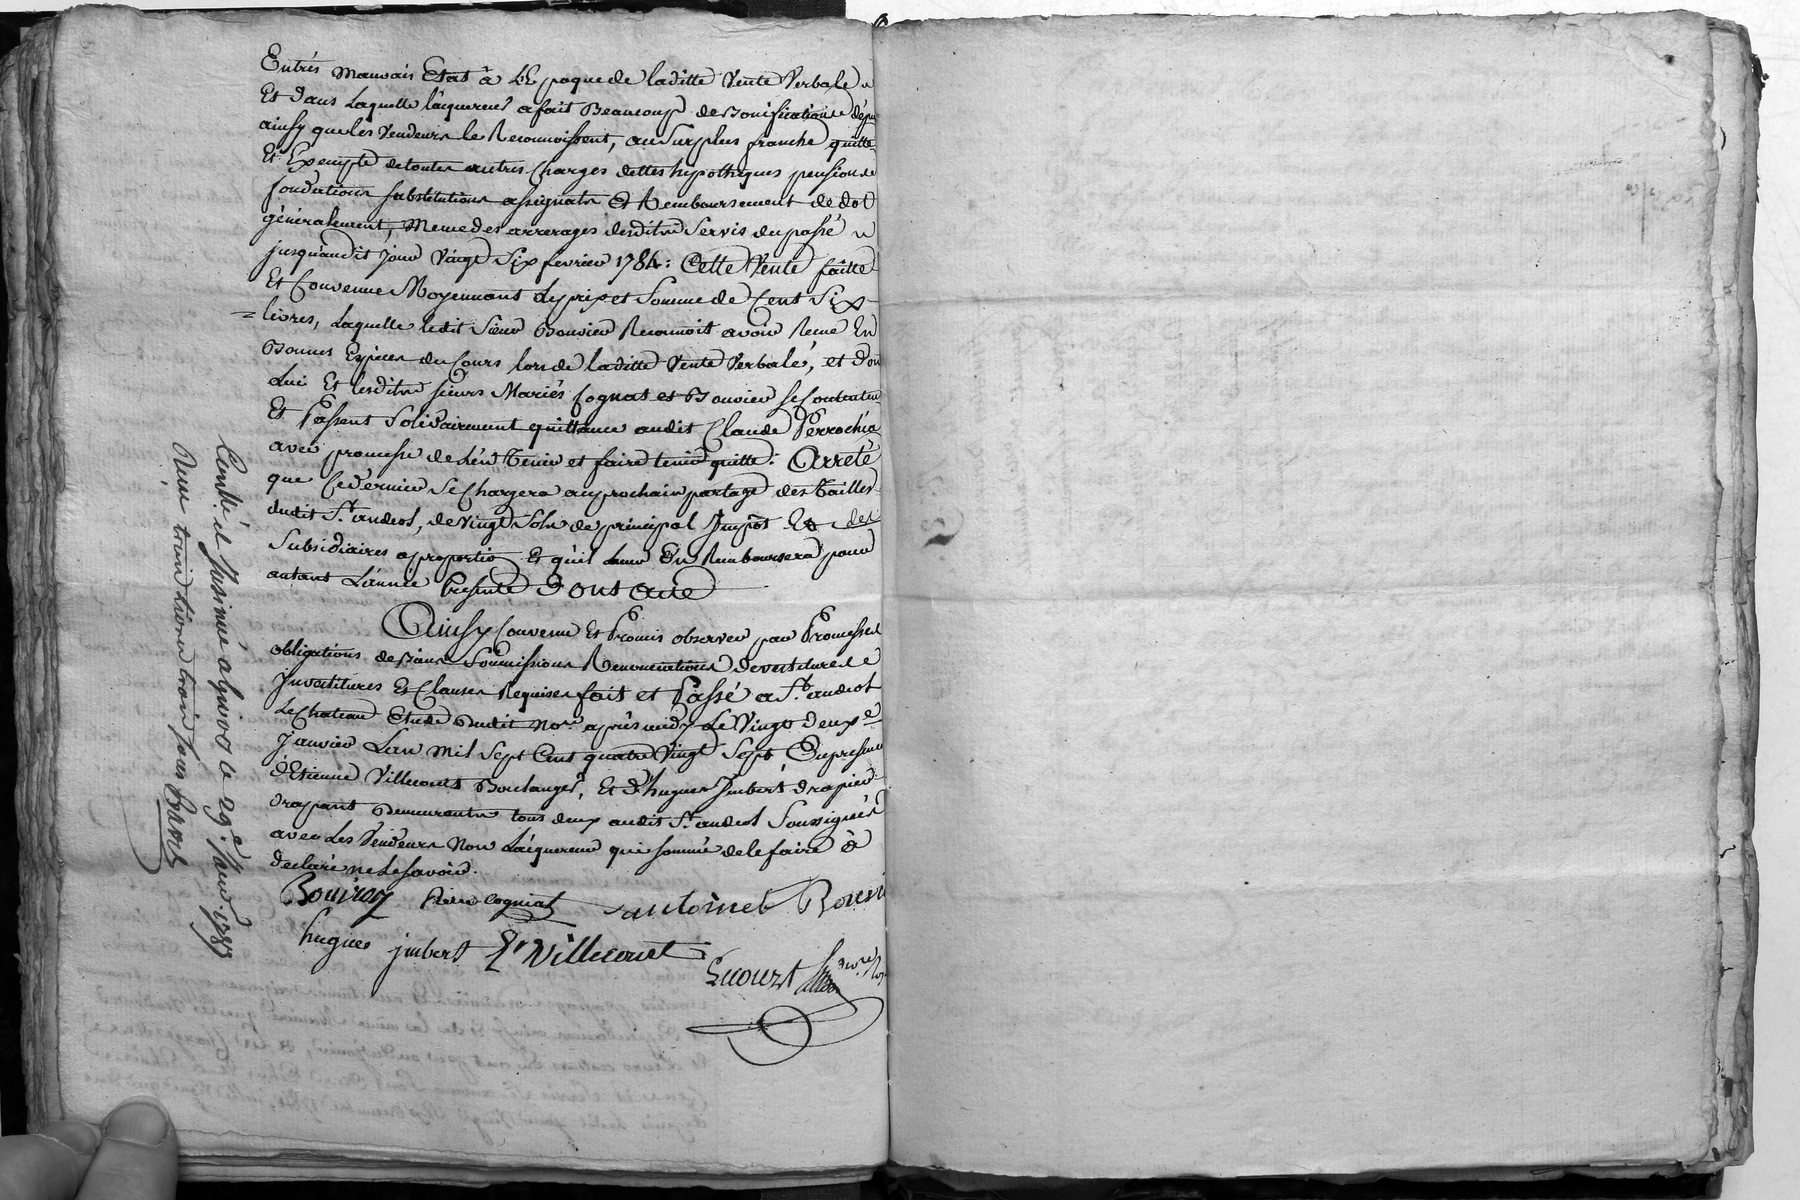 Entrés mauvais Etat à L'Epoque de laditte Vente Verbale
Et dans Laquelle l'acquereur a fait Beaucoup de Bonifications
ainsy que les Vendeurs le Reconnoissent, au Surplus franche quitte
Et Exempte de toutes autres Charges dettes hypotheques pensions
fondations substitutions assignats Et Remboursement de dot
généralement, Meme des arrerages desdits Servis du passé
jusqu'audit Jour Vingt Six fevrier 1784: Cette Vente faitte
Et Convenue Moyennant Le prix et Somme de Cent Six
livres, Laquelle ledit Sieur Bouvier Reconnoit avoir Recue En
Bonnes Espèces du Cours lors de laditte Vente Verbale, et dont
Lui Et lesdits sieurs Mariés Cognat et Bouvier se Contentent
Et Passent Solidairement quittance audit Claude Perrochia
avec promesse de L'én Tenir et faire tenir quitte: Arreté
que Ce dernier Se Chargera au prochain partage des Tailles
dudit St. andeol, de Vingt Sols de principal Impôt Et des
Subsidiaires a proportio Et qu'il Leur En Remboursera pour
autant L'année Presente Dont Acte
Ainsy Convenu Et Promis observer par Promesses
obligations de Biens Soumissions Renonciations devestitures
Investitures Et Clauses Requises fait et Passé a St. andeol
Le Chateau Etude dudit Nore. après midy Le Vingt deuxe
Janvier L'an Mil Sept Cent quatre Vingt Sept En presence
d'Etienne Villecourt Boulanger, Et d'hugues Imbert drapier
drapant Demeurants tous deux audit St. andeol Soussignés
avec Les Vendeurs Non L'acquereur qui sommé de le faire à
declaré ne le savoir.
Bouvier Pierre Cognat antoinet Bouvi
hugues jmbert Et Villecourt
Lecourt nore
Contlé et Insinué a givors le 29e Janv. 1787
Reçu trois livres trois sous